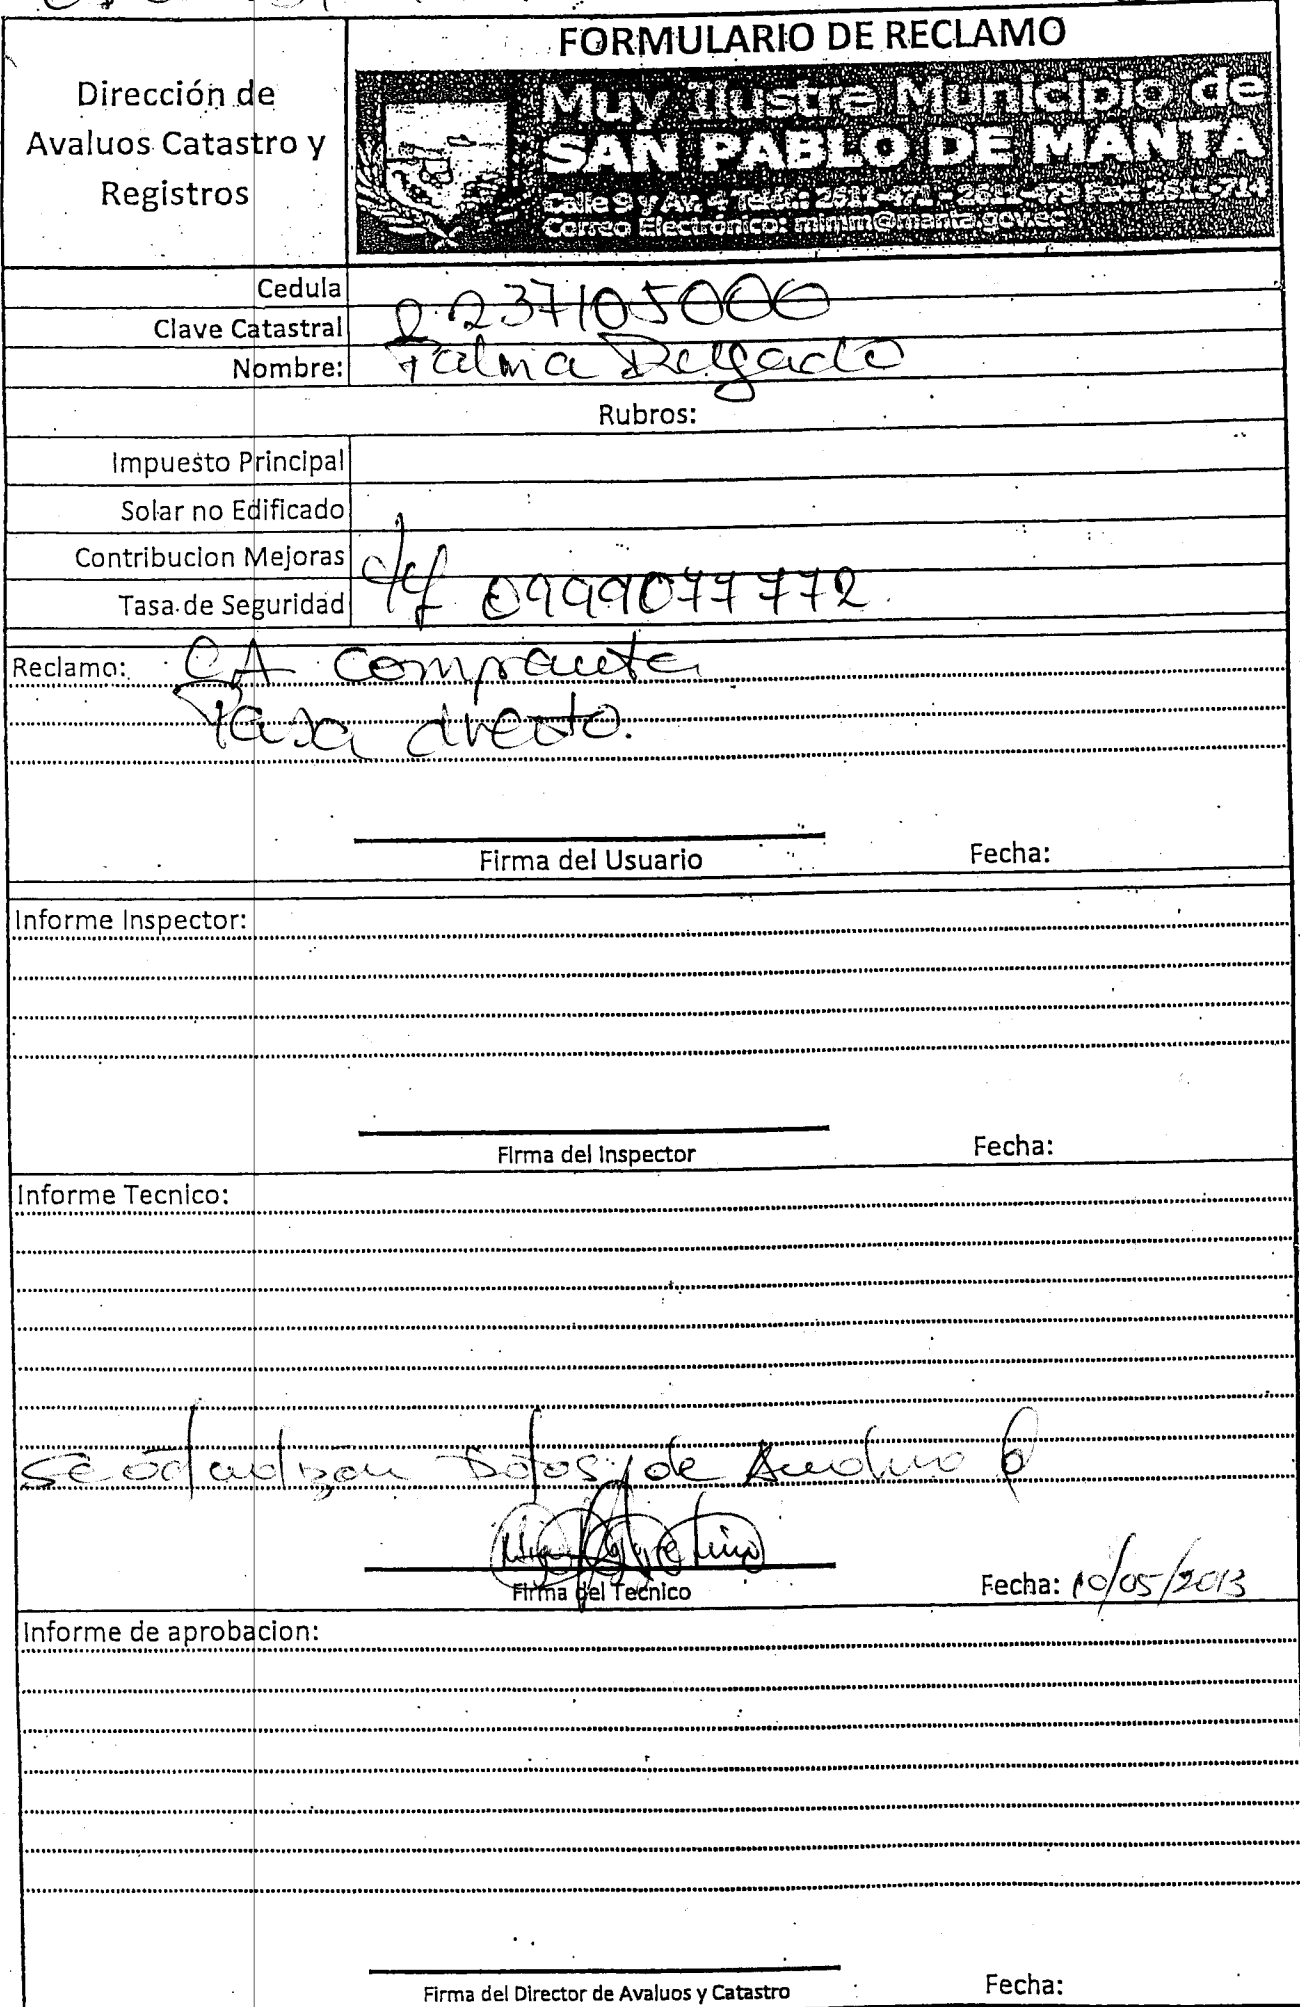 FORMULARIO DE RECLAMO
Dirección de
Avaluos Catastro y
Registros
Muy Ilustre Municipio de
SAN PABLO DE MANTA
Calle 9 y Av. 4 Telf.: 2611-471 - 2611-479 Fax: 2611-714
Correo Electrónico: mimm@manta.gov.ec
Cedula
Clave Catastral 2237105000
Nombre: Palma Delgado
Rubros:
Impuesto Principal
Solar no Edificado
Contribucion Mejoras
Tasa de Seguridad 0999077772
Reclamo: CA compraventa
Pasa directo.
Firma del Usuario Fecha:
Informe Inspector:
Firma del Inspector Fecha:
Informe Tecnico:
Se actualizan Datos de
Firma del Tecnico Fecha: 10/05/2013
Informe de aprobacion:
Firma del Director de Avaluos y Catastro Fecha: